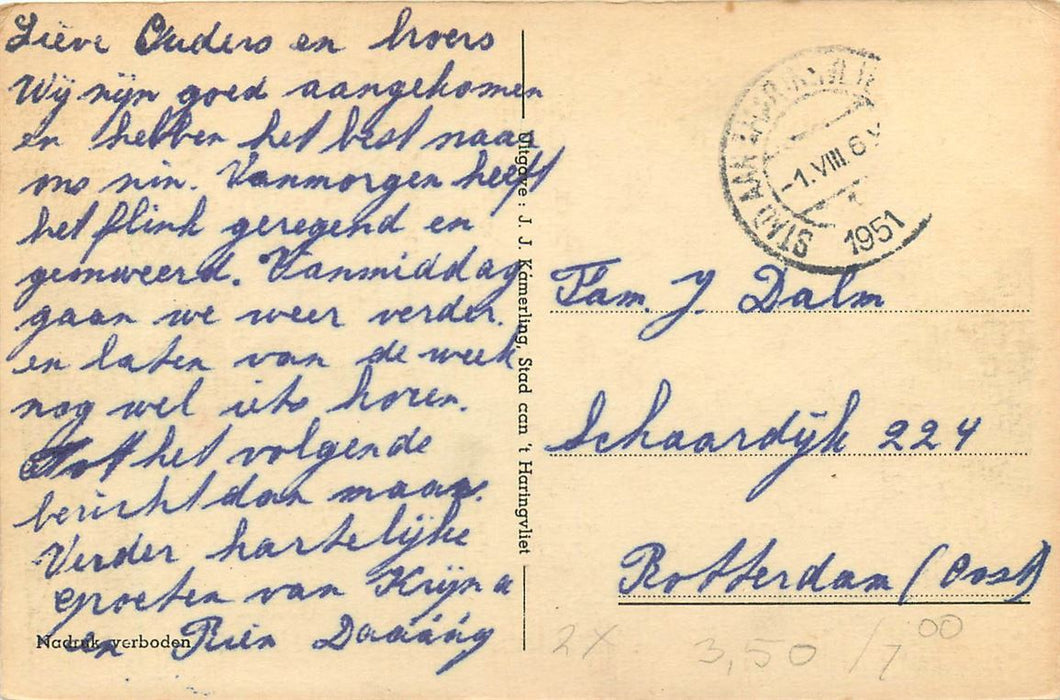 Lieve Ouders en broers
Wij zijn goed aangekomen
en hebben het best naar
ons zin. Vanmorgen heeft
het flink geregend en
geonweerd. Vanmiddag
gaan we weer verder.
en laten van de week
nog wel iets horen.
Tot het volgende
bericht dan maar.
Verder hartelijke
groeten van Krijn
en Rien Daaááág
Nadruk verboden
Uitgave: J. J. Kamerling, Stad aan 't Haringvliet
STAD AAN
-1.VIII 6
1951
Fam. J. Dalm
Schaardijk 224
Rotterdam (Oost)
2X 3,50 / 7 00